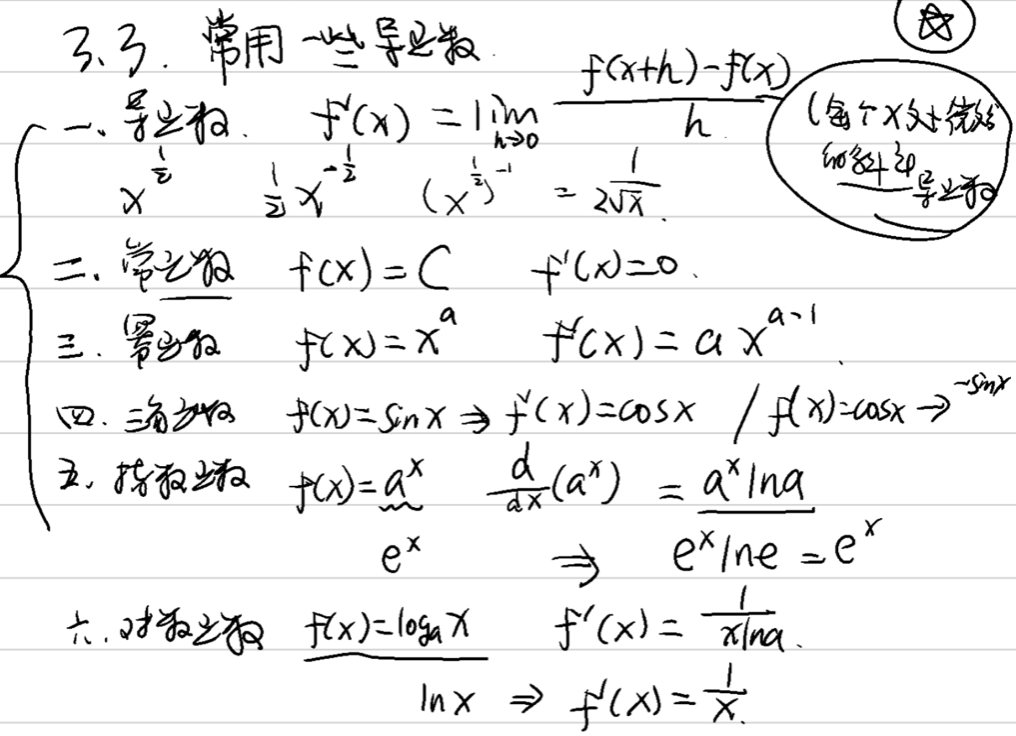 3.3. 常用一些导函数.
一、导函数. f'(x) = lim h→0 f(x+h)-f(x) / h
(每个x处微妙的斜率 导函数
x^{1/2} 1/2 x^{-1/2} (x^{1/2})^{-1} = 1/2√x.
二、常函数 f(x) = C f'(x)=0.
三. 幂函数 f(x) = x^a f'(x) = a x^{a-1}.
四. 三角函数 f(x)=sinx ⇒ f'(x)=cosx / f(x)=cosx → -sinx
五、指数函数 f(x)=a^x d/dx (a^x) = a^x lna
e^x ⇒ e^x lne = e^x
六. 对数函数 f(x)=log_a x f'(x) = 1/xlna.
lnx ⇒ f'(x) = 1/x.